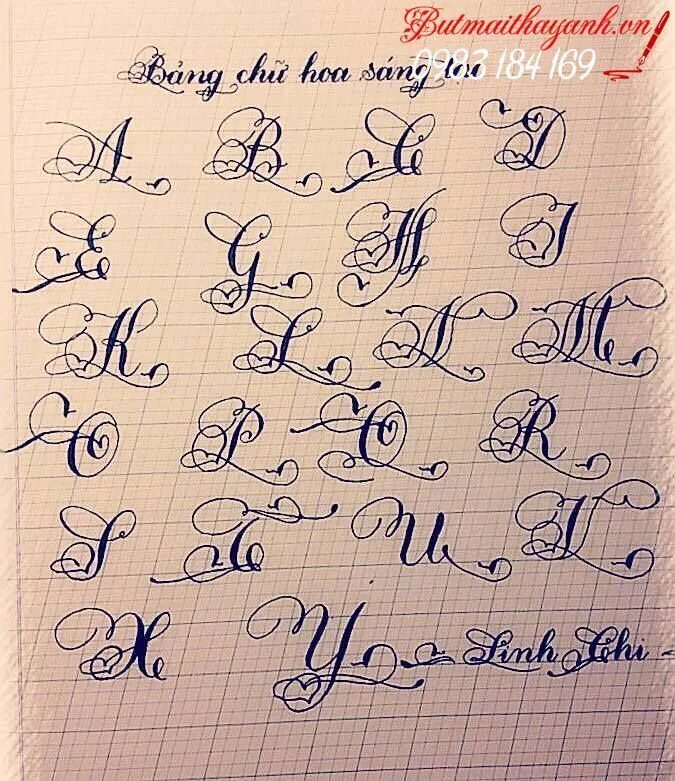 Butmaithayanh.vn
0983 184 169
Bảng chữ hoa sáng tạo
A B C D
E G H I
K L N M
O P Q R
S T U V
X Y Linh Chi